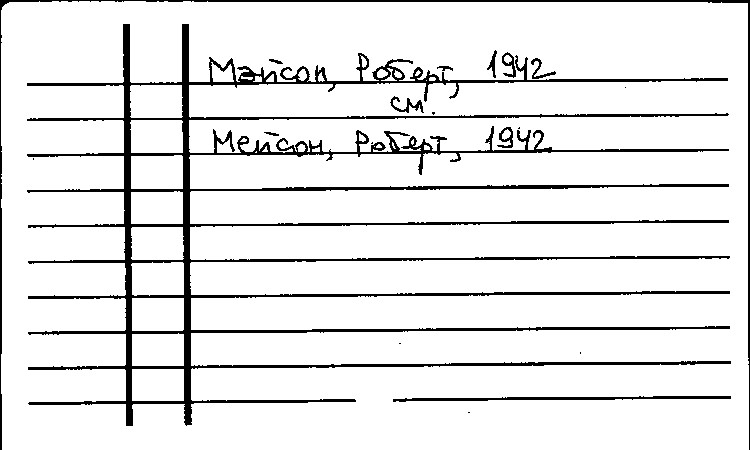 Мэйсон, Роберт, 1942
см.
Мейсон, Роберт, 1942